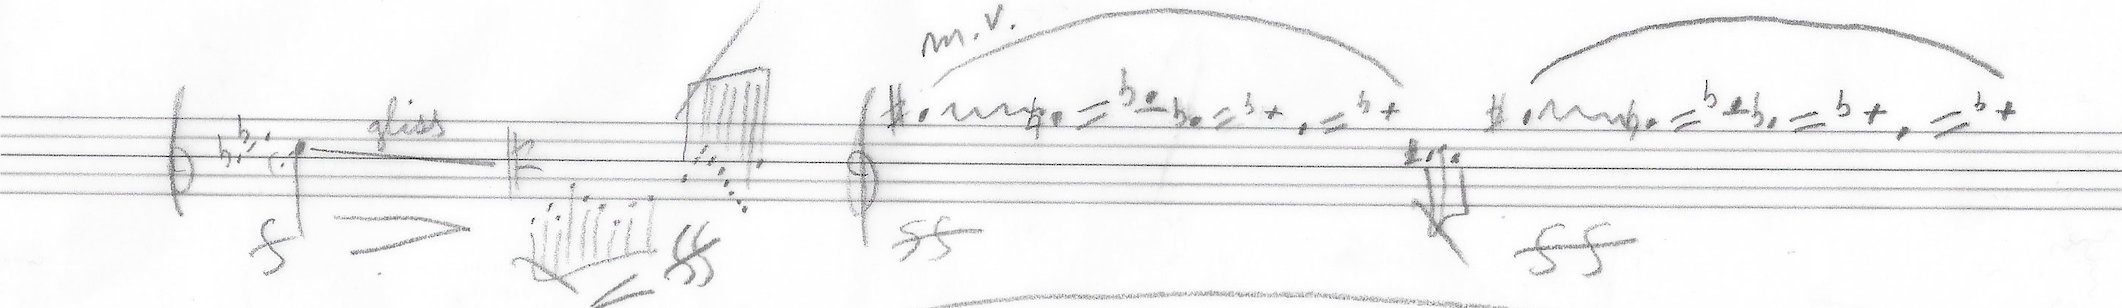 m.v.
gliss
f ff ff ff